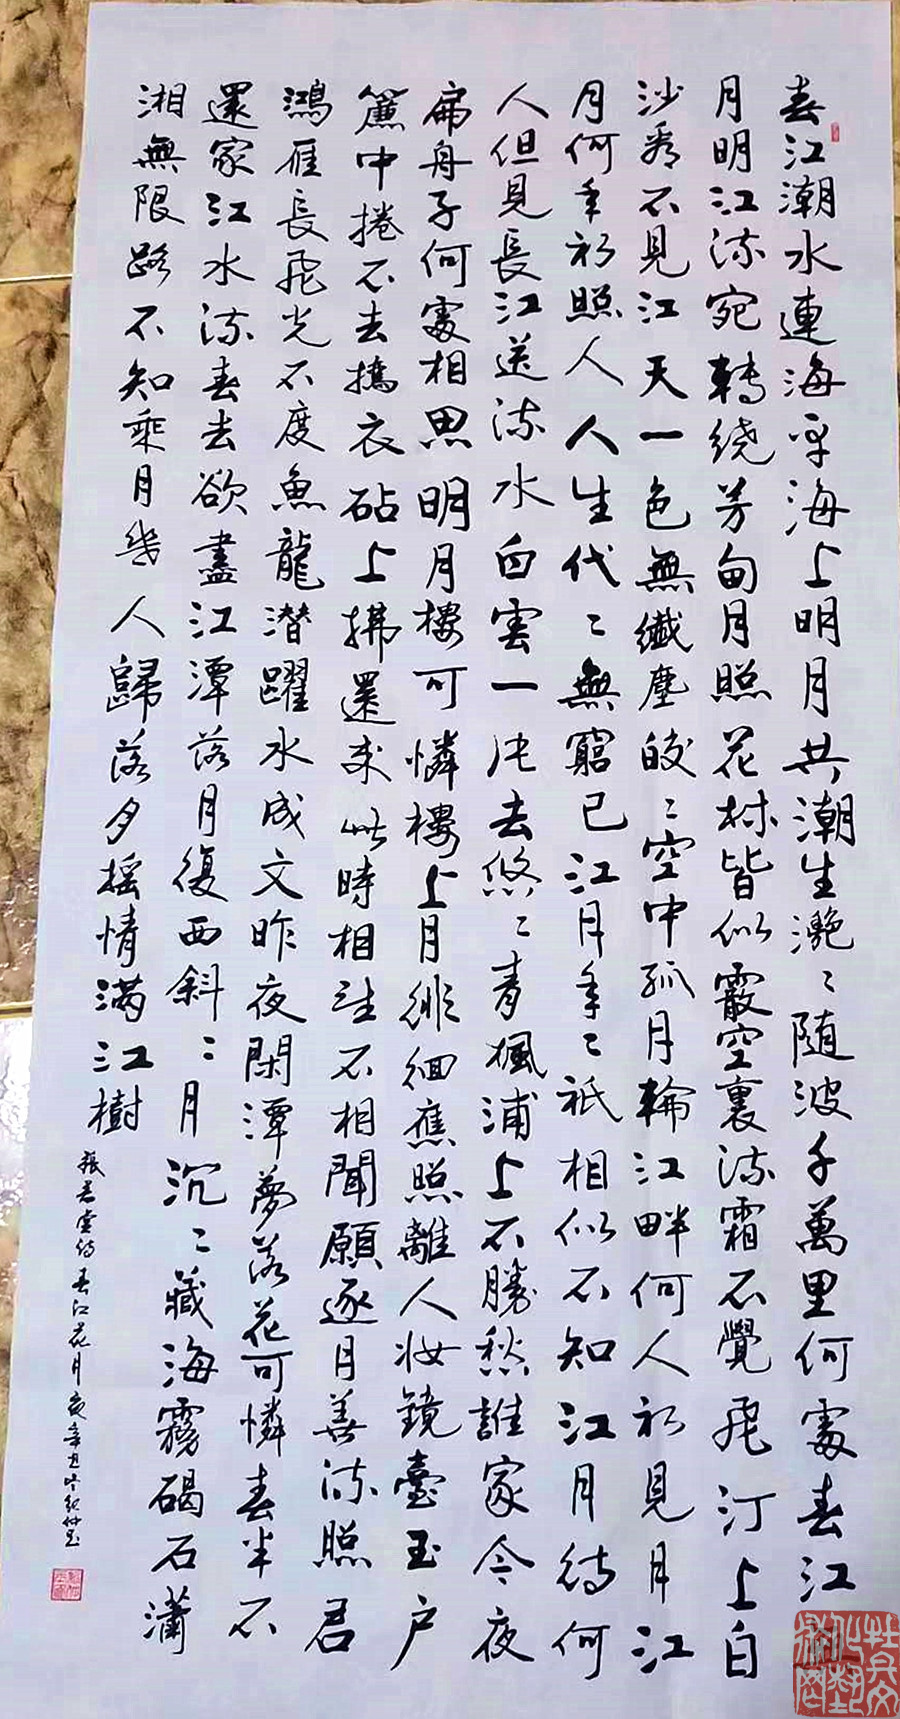 春江潮水連海平海上明月共潮生灔〻随波千萬里何處春江
月明江流宛轉绕芳甸月照花林皆似霰空裏流霜不覺飛汀上白
沙看不見江天一色無纖塵皎〻空中孤月輪江畔何人初見月江
月何年初照人人生代〻無窮已江月年〻祇相似不知江月待何
人但見長江送流水白雲一片去悠〻青楓浦上不勝愁誰家今夜
扁舟子何處相思明月樓可憐樓上月徘徊應照離人妆鏡臺玉户
簾中捲不去擣衣砧上拂還来此時相望不相聞願逐月華流照君
鴻雁長飛光不度魚龍潜躍水成文昨夜閑潭夢落花可憐春半不
還家江水流春去欲盡江潭落月復西斜〻月沉〻藏海霧碣石瀟
湘無限路不知乘月幾人歸落夕摇情满江樹
張若虚诗春江花月夜辛丑